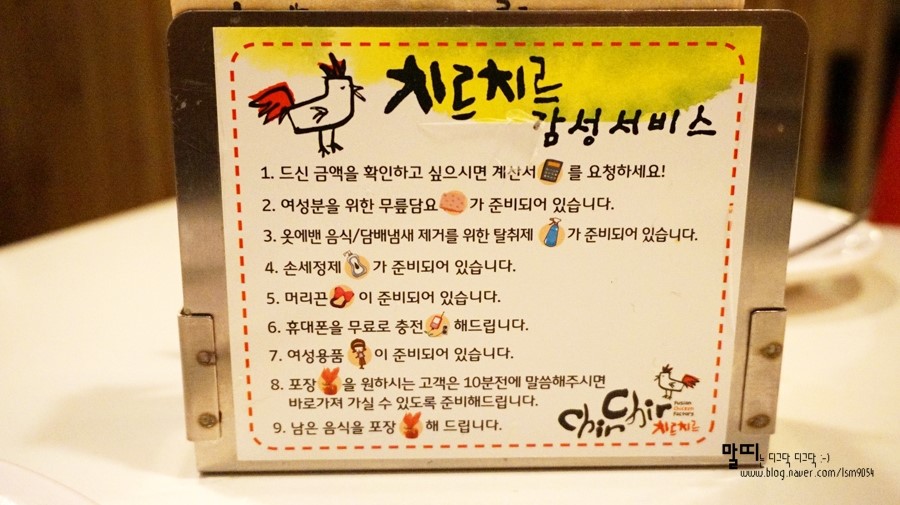 치르치르
감성서비스
1. 드신 금액을 확인하고 싶으시면 계산서 를 요청하세요!
2. 여성분을 위한 무릎담요 가 준비되어 있습니다.
3. 옷에밴 음식/담배냄새 제거를 위한 탈취제 가 준비되어 있습니다.
4. 손세정제 가 준비되어 있습니다.
5. 머리끈 이 준비되어 있습니다.
6. 휴대폰을 무료로 충전 해드립니다.
7. 여성용품 이 준비되어 있습니다.
8. 포장 을 원하시는 고객은 10분전에 말씀해주시면
바로가져 가실 수 있도록 준비해드립니다.
9. 남은 음식을 포장 해 드립니다.
ChirChir
Fusion
Chicken
Factory
치르치르
말띠는 디그닥 디그닥 :-)
www.blog.naver.com/lsm9054